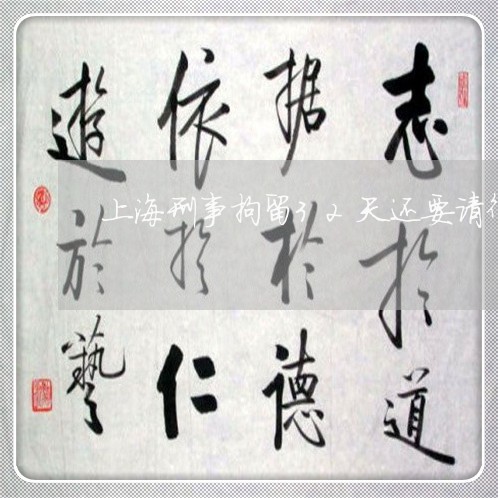 志於道
据於德
依於仁
遊於藝
上海刑事拘留312天还要请